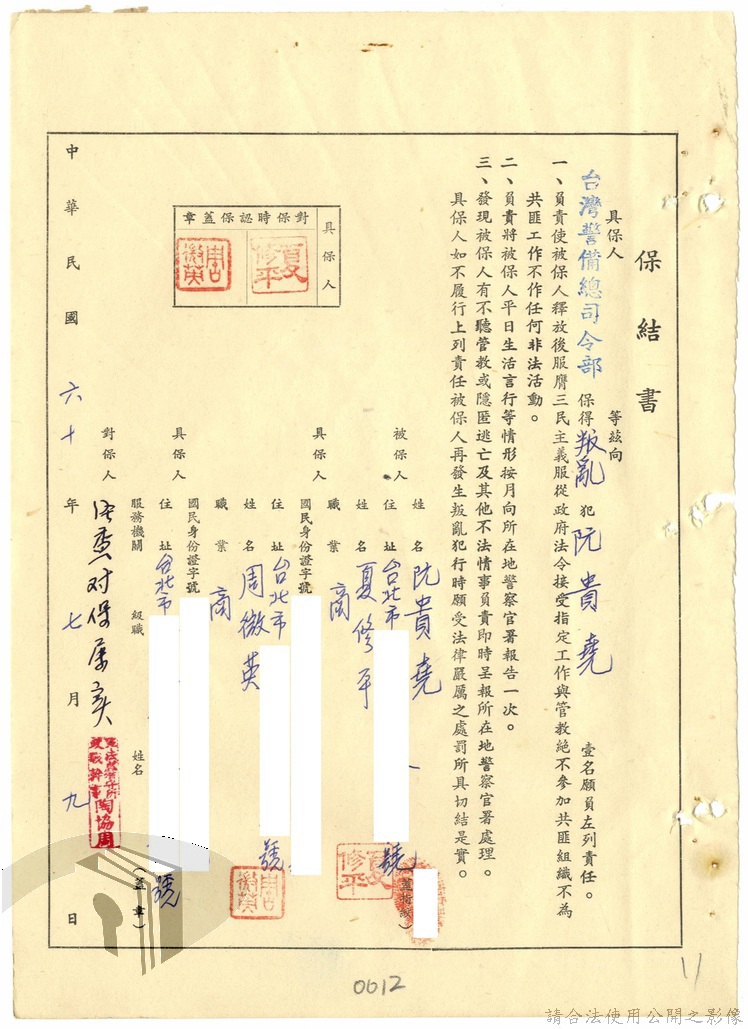 保結書
具保人　等茲向
台灣警備總司令部　保得叛亂犯阮貴堯　壹名願負左列責任。
一、負責使被保人釋放後服膺三民主義服從政府法令接受指定工作與管教絕不參加共匪組織不為
共匪工作不作任何非法活動。
二、負責將被保人平日生活言行等情形按月向所在地警察官署報告一次。
三、發現被保人有不聽管教或隱匿逃亡及其他不法情事負責即時呈報所在地警察官署處理。
具保人如不履行上列責任被保人再發生叛亂犯行時願受法律嚴厲之處罰所具切結是實。
被保人　姓名　阮貴堯
住址　台北市　號
具保人　姓名　夏修平
夏修平
職業　商
國民身份證字號
住址　台北市　號
具保人　姓名　周微英
周微英
職業　商
國民身份證字號
住址　台北市　號
對保人　服務機關　級職　姓名　（蓋章）
对保屬实
陶協周
具保人
對保時認保蓋章
夏修平
周微英
中華民國六十年七月九日
0612
11
請合法使用公開之影像